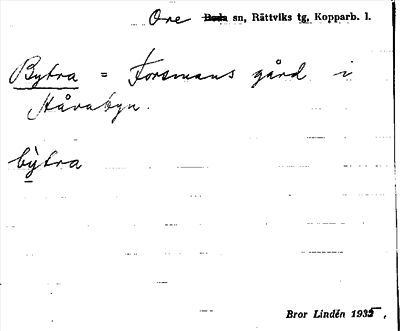 Ore Boda sn, Rättviks tg, Kopparb. l.
Bytra = Forsmans gård i
Håvabyn.
bỳtra
Bror Lindén 1935.